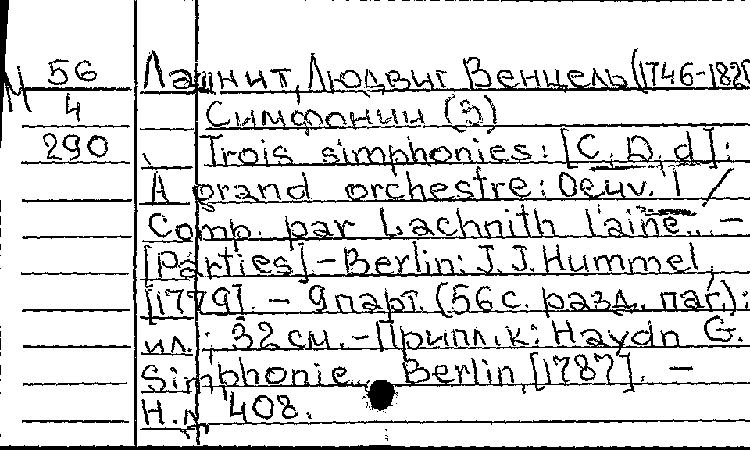 М 56 Лашнит, Людвиг Венцель (1746-1820
4 Симфонии (3)
290 Trois simphonies: [C, D, d]:
A grand orchestre: Oeuv. 1 /
Comp. par Lachnith l'ainé... –
[Parties]. – Berlin: J. J. Hummel,
[1779]. – 9 парт. (56 с. разд. паг.):
ил.; 32 см. – Припл. к: Haydn G.
Simphonie... Berlin, [1787]. –
Н.д. 408.